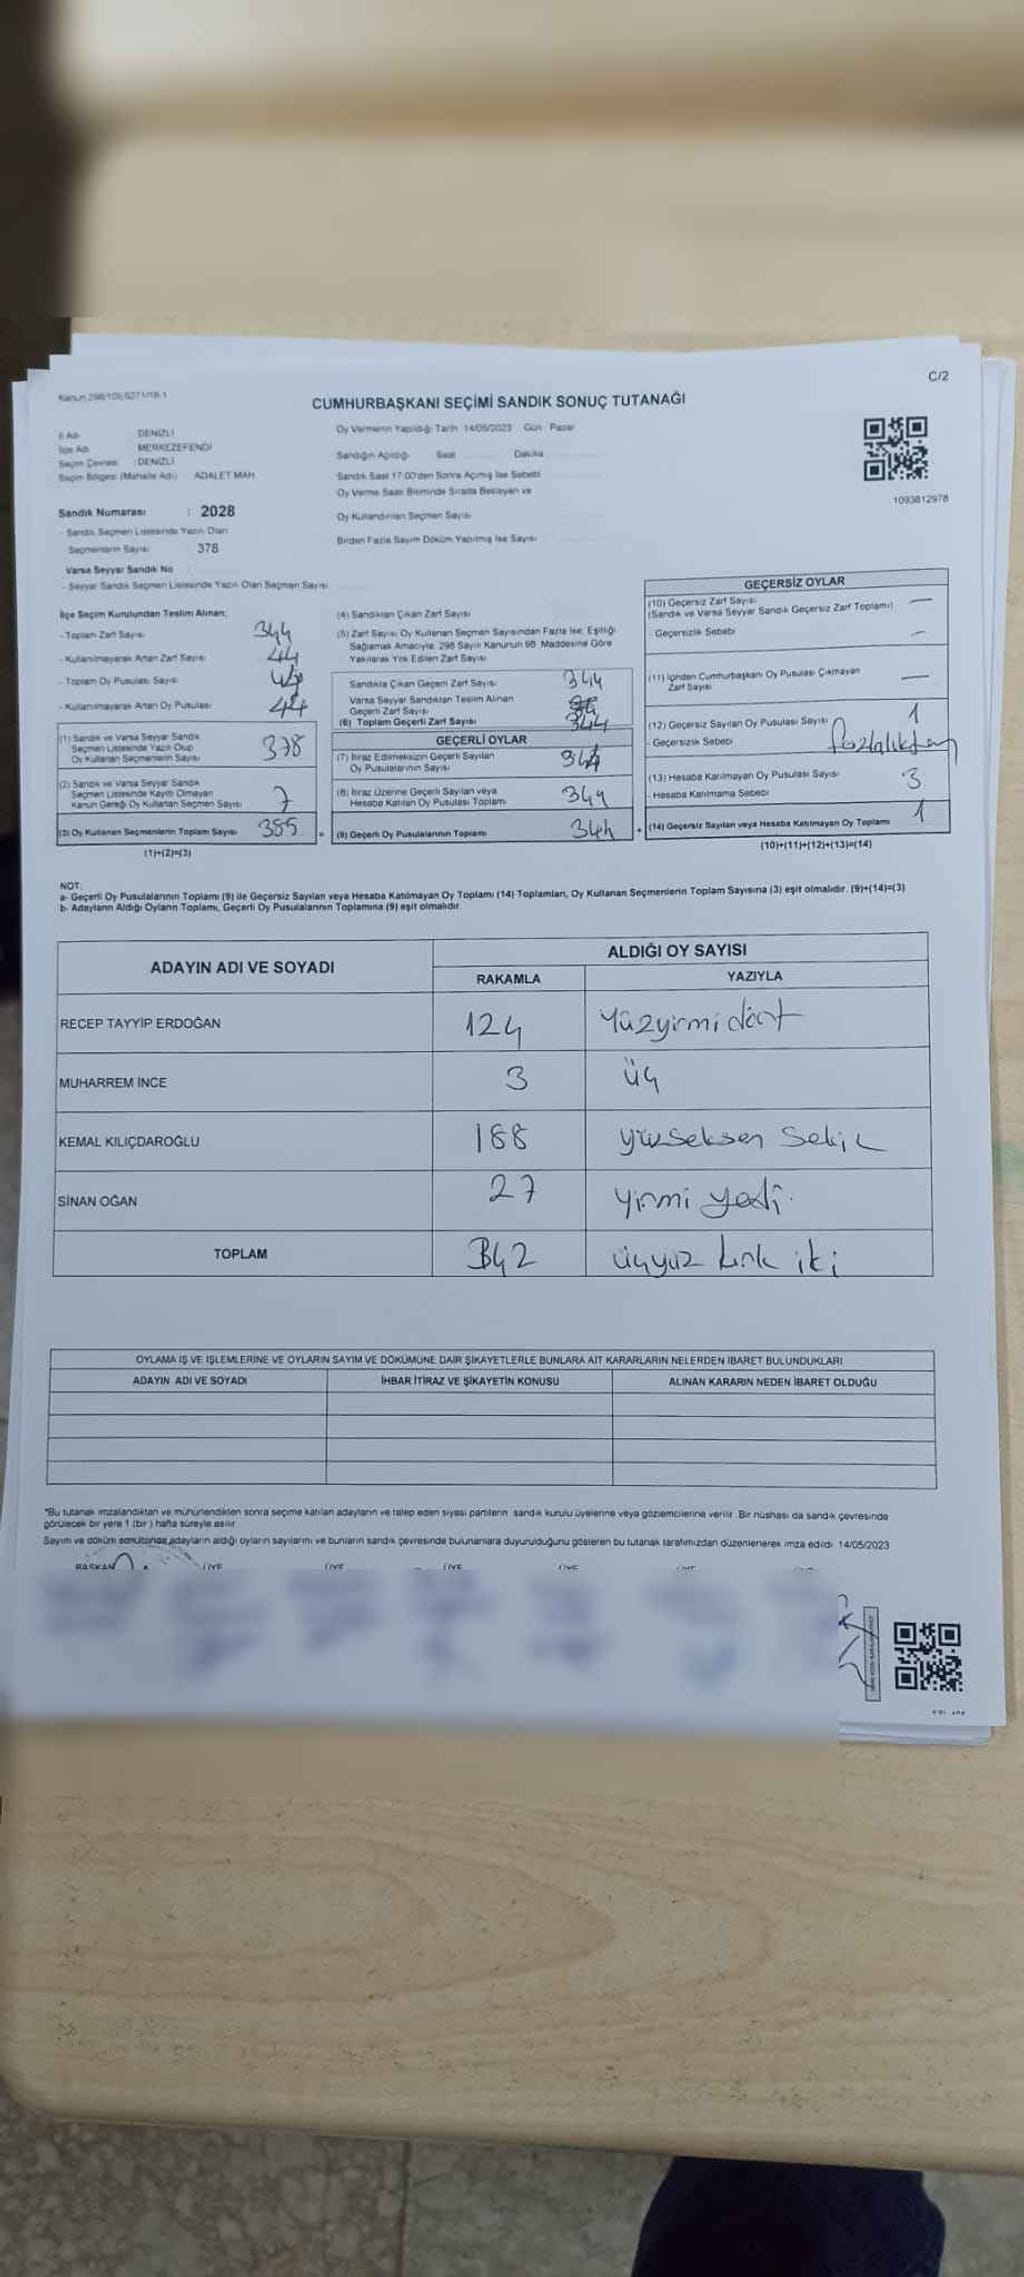 C/2
Kanun 298/105,6271/18-1
CUMHURBAŞKANI SEÇİMİ SANDIK SONUÇ TUTANAĞI
İl Adı : DENİZLİ
İlçe Adı : MERKEZEFENDİ
Seçim Çevresi : DENİZLİ
Seçim Bölgesi (Mahalle Adı) : ADALET MAH
Sandık Numarası : 2028
- Sandık Seçmen Listesinde Yazılı Olan
Seçmenlerin Sayısı 378
Varsa Seyyar Sandık No :
- Seyyar Sandık Seçmen Listesinde Yazılı Olan Seçmen Sayısı
Oy Vermenin Yapıldığı Tarih 14/05/2023 Gün : Pazar
Sandığın Açıldığı Saat Dakika
Sandık Saat 17:00'den Sonra Açılmış İse Sebebi
Oy Verme Saati Bitiminde Sırada Bekleyen ve
Oy Kullandırılan Seçmen Sayısı
Birden Fazla Sayım Döküm Yapılmış İse Sayısı
1093812978
İlçe Seçim Kurulundan Teslim Alınan;
- Toplam Zarf Sayısı 344
- Kullanılmayarak Artan Zarf Sayısı 44
- Toplam Oy Pusulası Sayısı
- Kullanılmayarak Artan Oy Pusulası 44
(1) Sandık ve Varsa Seyyar Sandık
Seçmen Listesinde Yazılı Olup
Oy Kullanan Seçmenlerin Sayısı 378
(2) Sandık ve Varsa Seyyar Sandık
Seçmen Listesinde Kayıtlı Olmayan
Kanun Gereği Oy Kullanan Seçmen Sayısı 7
(3) Oy Kullanan Seçmenlerin Toplam Sayısı 385
(1)+(2)=(3)
(4) Sandıktan Çıkan Zarf Sayısı
(5) Zarf Sayısı Oy Kullanan Seçmen Sayısından Fazla İse, Eşitliği
Sağlamak Amacıyla, 298 Sayılı Kanunun 98. Maddesine Göre
Yakılarak Yok Edilen Zarf Sayısı
Sandıkta Çıkan Geçerli Zarf Sayısı 344
Varsa Seyyar Sandıktan Teslim Alınan
Geçerli Zarf Sayısı
(6) Toplam Geçerli Zarf Sayısı 344
GEÇERLİ OYLAR
(7) İtiraz Edilmeksizin Geçerli Sayılan
Oy Pusulalarının Sayısı 344
(8) İtiraz Üzerine Geçerli Sayılan veya
Hesaba Katılan Oy Pusulası Toplamı 344
(9) Geçerli Oy Pusulalarının Toplamı 344
GEÇERSİZ OYLAR
(10) Geçersiz Zarf Sayısı —
(Sandık ve Varsa Seyyar Sandık Geçersiz Zarf Toplamı)
- Geçersizlik Sebebi —
(11) İçinden Cumhurbaşkanı Oy Pusulası Çıkmayan
Zarf Sayısı —
(12) Geçersiz Sayılan Oy Pusulası Sayısı 1
- Geçersizlik Sebebi fazlalıktan
(13) Hesaba Katılmayan Oy Pusulası Sayısı 3
- Hesaba Katılmama Sebebi
(14) Geçersiz Sayılan veya Hesaba Katılmayan Oy Toplamı 1
(10)+(11)+(12)+(13)=(14)
NOT:
a- Geçerli Oy Pusulalarının Toplamı (9) ile Geçersiz Sayılan veya Hesaba Katılmayan Oy Toplamı (14) Toplamları, Oy Kullanan Seçmenlerin Toplam Sayısına (3) eşit olmalıdır. (9)+(14)=(3)
b- Adayların Aldığı Oyların Toplamı, Geçerli Oy Pusulalarının Toplamına (9) eşit olmalıdır.
ADAYIN ADI VE SOYADI
ALDIĞI OY SAYISI
RAKAMLA YAZIYLA
RECEP TAYYİP ERDOĞAN 124 Yüzyirmi dört
MUHARREM İNCE 3 üç
KEMAL KILIÇDAROĞLU 188 yüzseksen Sekiz
SİNAN OĞAN 27 yirmi yedi.
TOPLAM 342 üçyüz kırk iki
OYLAMA İŞ VE İŞLEMLERİNE VE OYLARIN SAYIM VE DÖKÜMÜNE DAİR ŞİKAYETLERLE BUNLARA AİT KARARLARIN NELERDEN İBARET BULUNDUKLARI
ADAYIN ADI VE SOYADI İHBAR İTİRAZ VE ŞİKAYETİN KONUSU ALINAN KARARIN NEDEN İBARET OLDUĞU
*Bu tutanak imzalandıktan ve mühürlendikten sonra seçime katılan adayların ve talep eden siyasi partilerin sandık kurulu üyelerine veya gözlemcilerine verilir. Bir nüshası da sandık çevresinde
görülecek bir yere 1 (bir) hafta süreyle asılır.
Sayım ve döküm sonucunda adayların aldığı oyların sayılarını ve bunların sandık çevresinde bulunanlara duyurulduğunu gösteren bu tutanak tarafımızdan düzenlenerek imza edildi. 14/05/2023
BAŞKAN ÜYE ÜYE ÜYE ÜYE ÜYE